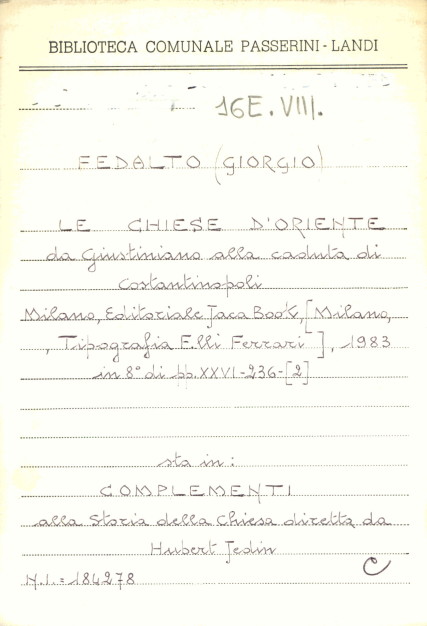 BIBLIOTECA COMUNALE PASSERINI-LANDI
16E.VIII.
FEDALTO (GIORGIO)
LE CHIESE D'ORIENTE
da Giustiniano alla caduta di
Costantinopoli
Milano, Editoriale Jaca Book, [Milano,
, Tipografia F.lli Ferrari], 1983
in 8° di pp. XXVI-236-[2]
sta in:
COMPLEMENTI
alla Storia della Chiesa diretta da
Hubert Jedin
C
N.I.=184278